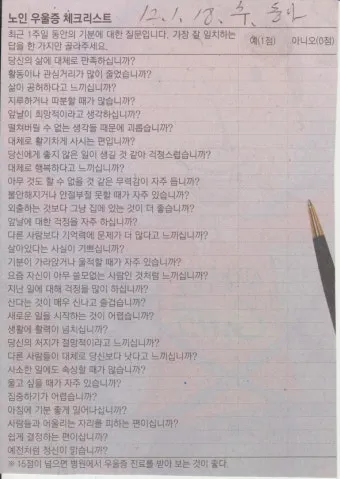 노인 우울증 체크리스트
12. 1. 18. 수.
최근 1주일 동안의 기분에 대한 질문입니다. 가장 잘 일치하는
답을 한 가지만 골라주세요.
예(1점) 아니오(0점)
당신의 삶에 대체로 만족하십니까?
활동이나 관심거리가 많이 줄었습니까?
삶이 공허하다고 느끼십니까?
지루하거나 따분할 때가 많습니까?
앞날이 희망적이라고 생각하십니까?
떨쳐버릴 수 없는 생각들 때문에 괴롭습니까?
대체로 활기차게 사시는 편입니까?
당신에게 좋지 않은 일이 생길 것 같아 걱정스럽습니까?
대체로 행복하다고 느끼십니까?
아무 것도 할 수 없을 것 같은 무력감이 자주 듭니까?
불안해지거나 안절부절 못할 때가 자주 있습니까?
외출하는 것보다 그냥 집에 있는 것이 더 좋습니까?
앞날에 대한 걱정을 자주 하십니까?
다른 사람보다 기억력에 문제가 더 많다고 느끼십니까?
살아있다는 사실이 기쁘십니까?
기분이 가라앉거나 울적할 때가 자주 있습니까?
요즘 자신이 아무 쓸모없는 사람인 것처럼 느끼십니까?
지난 일에 대해 걱정을 많이 하십니까?
산다는 것이 매우 신나고 즐겁습니까?
새로운 일을 시작하는 것이 어렵습니까?
생활에 활력이 넘치십니까?
당신의 처지가 절망적이라고 느끼십니까?
다른 사람들이 대체로 당신보다 낫다고 느끼십니까?
사소한 일에도 속상할 때가 많습니까?
울고 싶을 때가 자주 있습니까?
집중하기가 어렵습니까?
아침에 기분 좋게 일어나십니까?
사람들과 어울리는 자리를 피하는 편이십니까?
쉽게 결정하는 편이십니까?
예전처럼 정신이 맑습니까?
※ 15점이 넘으면 병원에서 우울증 진료를 받아 보는 것이 좋다.